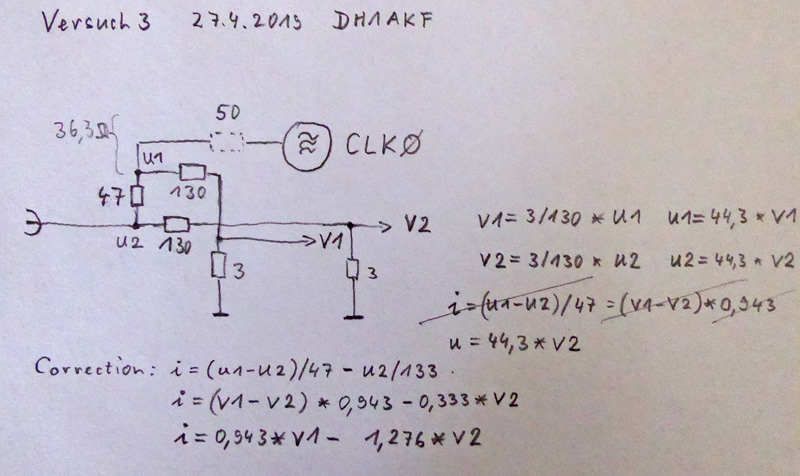 Versuch 3 27.4.2019 DH1AKF
50
36,3Ω
CLKØ
u1
47
130
V2
u2
130
V1
3
3
V1 = 3/130 * u1 u1 = 44,3 * V1
V2 = 3/130 * u2 u2 = 44,3 * V2
i = (u1-u2)/47 = (V1-V2) * 0,943
u = 44,3 * V2
Correction: i = (u1-u2)/47 - u2/133
i = (V1-V2) * 0,943 - 0,333 * V2
i = 0,943 * V1 - 1,276 * V2